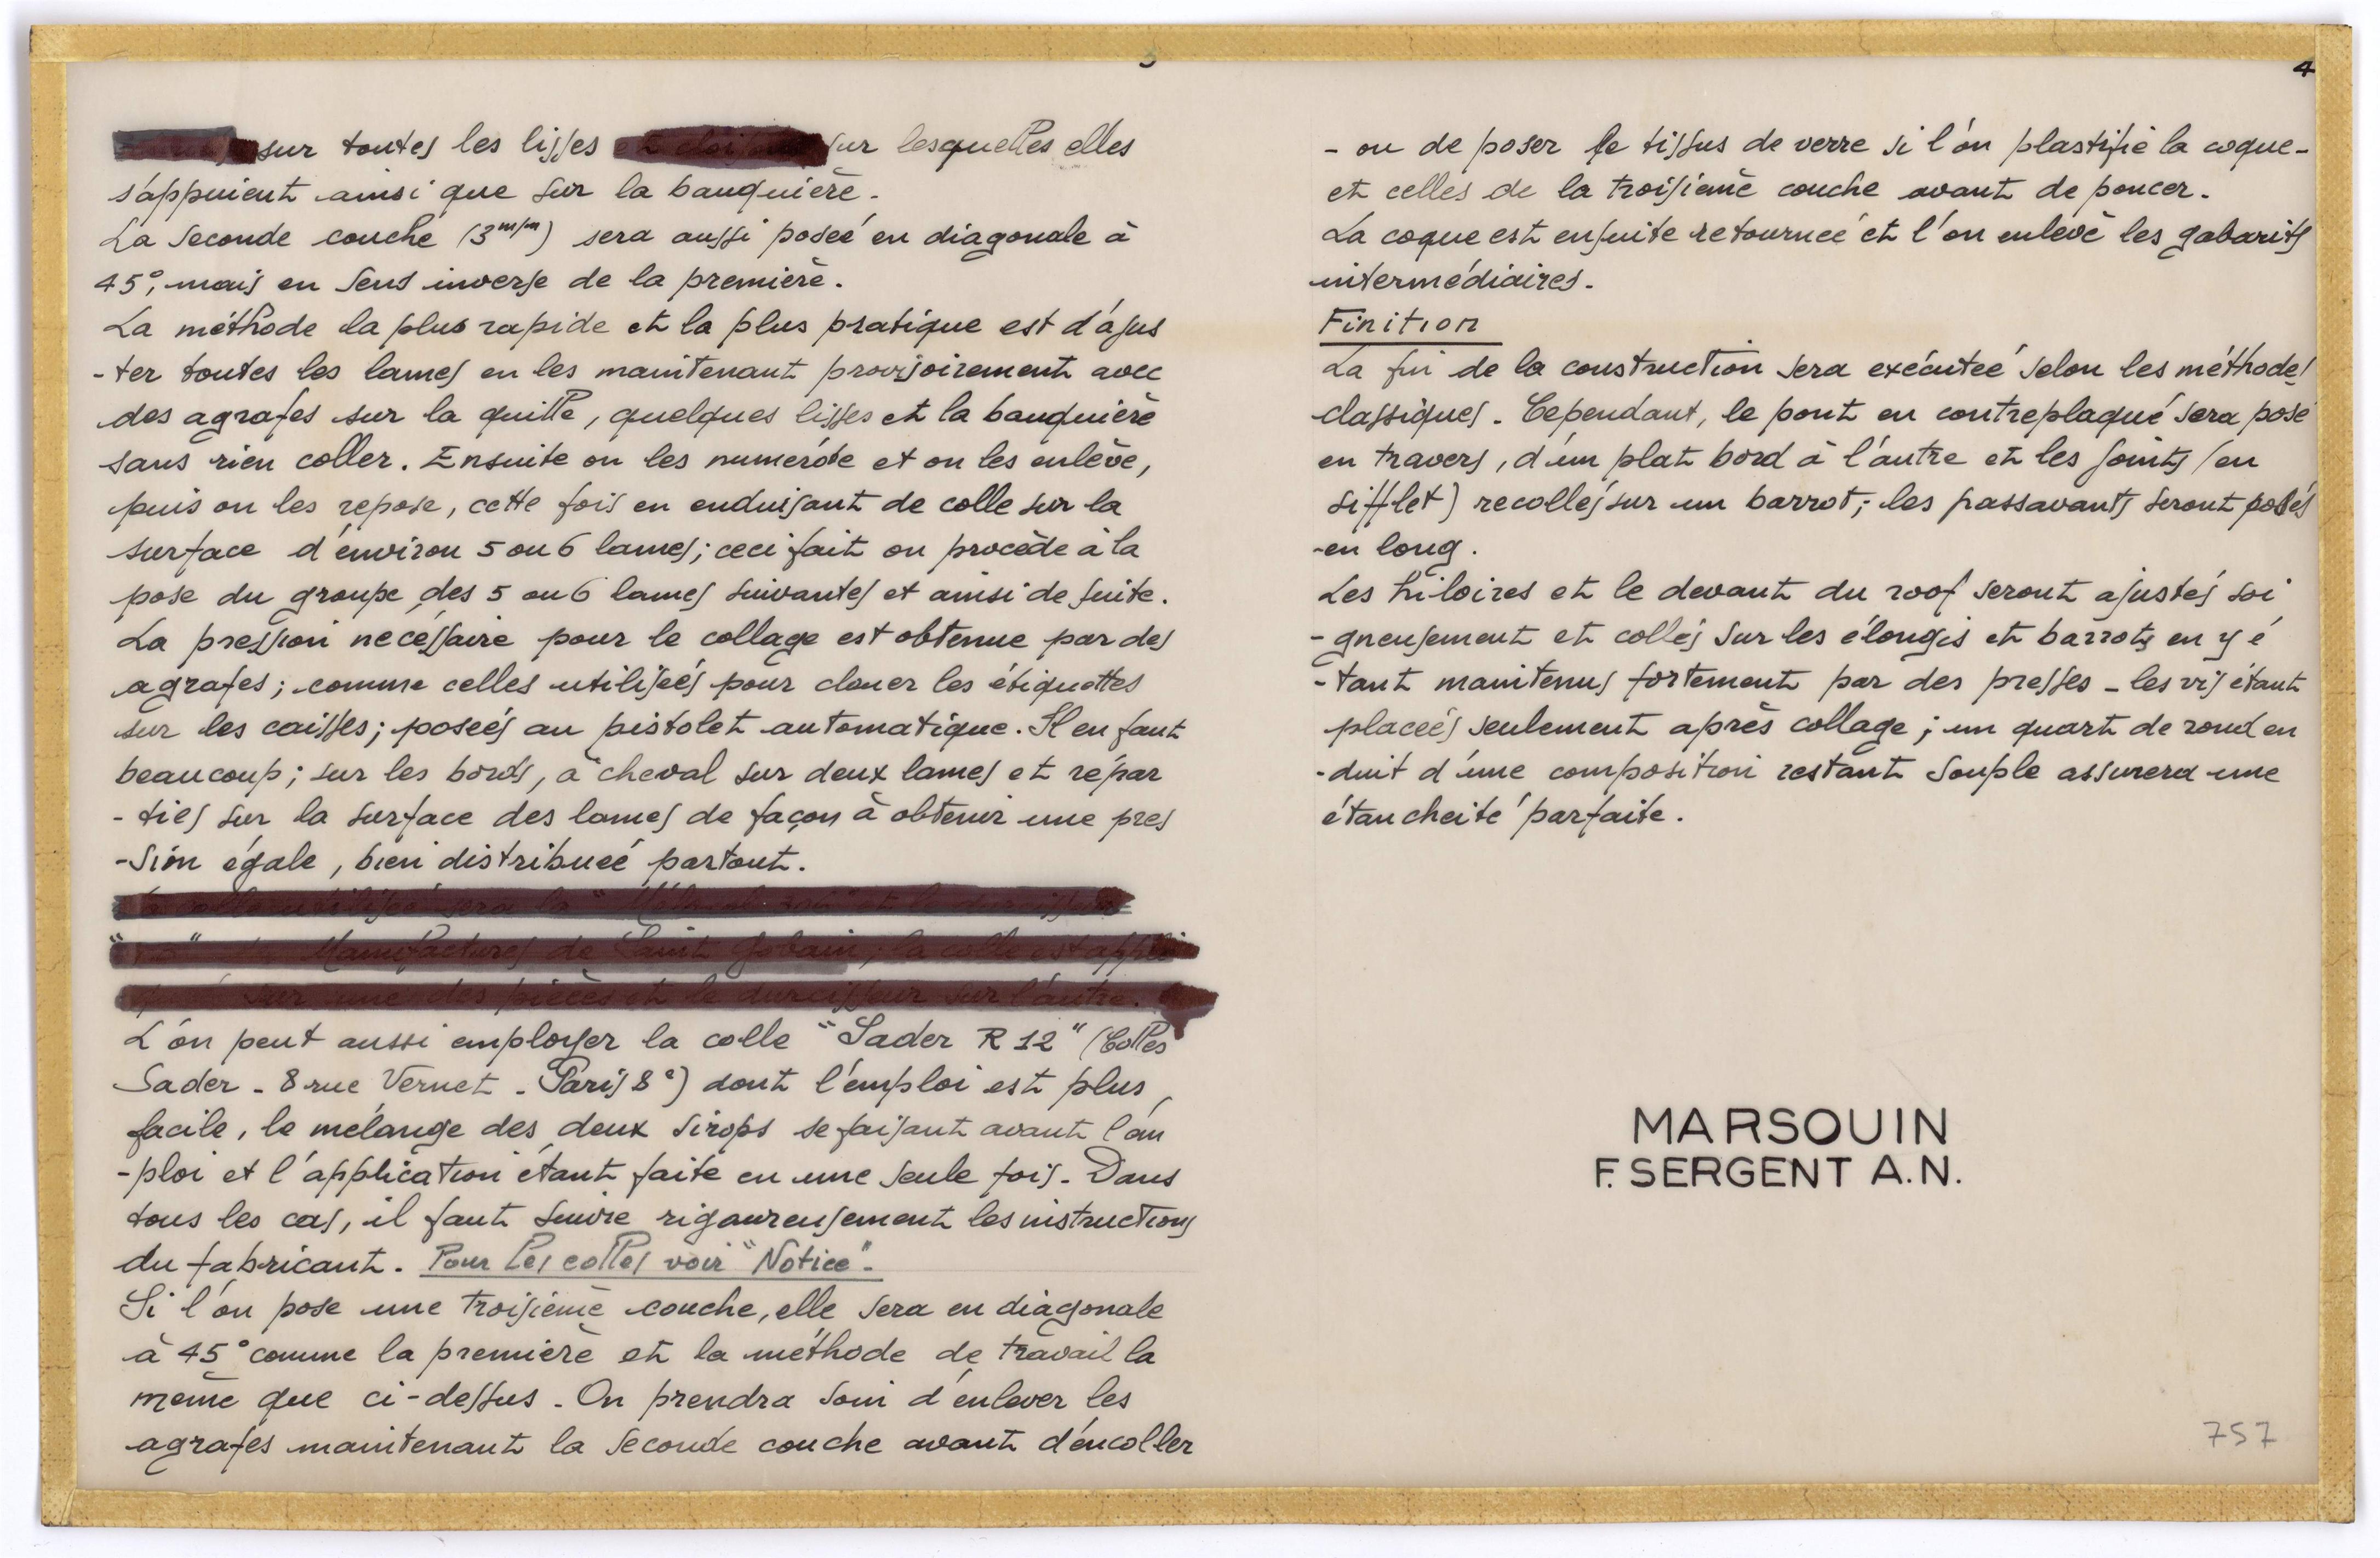 3
sur toutes les lisses et cloisons sur lesquelles elles
s'appuient ainsi que sur la bauquière.
La seconde couche (3 m/m) sera aussi posée en diagonale à
45°, mais en sens inverse de la première.
La méthode la plus rapide et la plus pratique est d'ajus
-ter toutes les lames en les maintenant provisoirement avec
des agrafes sur la quille, quelques lisses et la bauquière
sans rien coller. Ensuite on les numérote et on les enlève,
puis on les repose, cette fois en enduisant de colle sur la
surface d'environ 5 ou 6 lames; ceci fait on procède à la
pose du groupe des 5 ou 6 lames suivantes et ainsi de suite.
La pression nécéssaire pour le collage est obtenue par des
agrafes; comme celles utilisées pour clouer les étiquettes
sur les caisses; posées au pistolet automatique. Il en faut
beaucoup; sur les bords, à cheval sur deux lames et répar
-ties sur la surface des lames de façon à obtenir une pres
-sion égale, bien distribuée partout.
La colle utilisée sera la " et le durcisseur
Manufactures de Saint Gobain, la colle est appli
sur une des pièces et le durcisseur sur l'autre.
L'on peut aussi employer la colle "Sader R 12" (Colles
Sader - 8 rue Vernet - Paris 8e) dont l'emploi est plus
facile, le mélange des deux sirops se faisant avant l'em
-ploi et l'application étant faite en une seule fois. Dans
tous les cas, il faut suivre rigoureusement les instructions
du fabricant. Pour les colles voir "Notice".
Si l'on pose une troisième couche, elle sera en diagonale
à 45° comme la première et la méthode de travail la
même que ci-dessus. On prendra soin d'enlever les
agrafes maintenant la seconde couche avant d'encoller
4
- ou de poser le tissus de verre si l'on plastifie la coque -
et celles de la troisième couche avant de poncer.
La coque est ensuite retournée et l'on enlève les gabarits
intermédiaires.
Finition
La fin de la construction sera exécutée selon les méthodes
classiques. Cependant, le pont en contreplaqué sera posé
en travers, d'un plat bord à l'autre et les joints (en
sifflet) recollés sur un barrot; les passavants seront posés
en long.
Les hiloires et le devant du roof seront ajustés soi
-gneusement et collés sur les élongis et barrots en y é
-tant maintenus fortement par des presses - les vis étant
placées seulement après collage; un quart de rond en
-duit d'une composition restant souple assurera une
étanchéité parfaite.
MARSOUIN
F. SERGENT A.N.
757